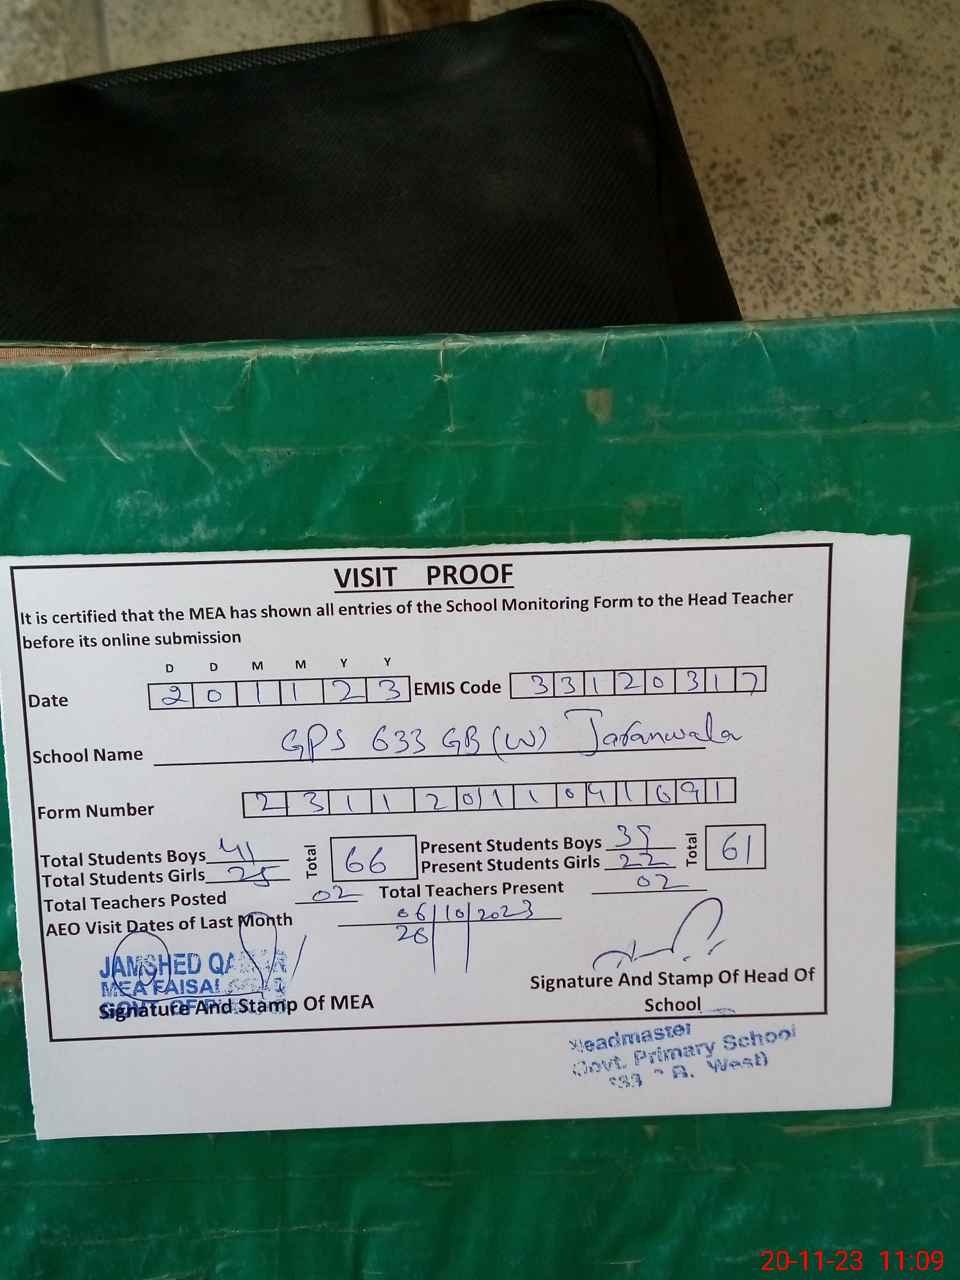 VISIT PROOF
It is certified that the MEA has shown all entries of the School Monitoring Form to the Head Teacher
before its online submission
D D M M Y Y
Date 2 0 1 1 2 3 EMIS Code 3 3 1 2 0 3 1 7
School Name GPS 633 GB (W) Jaranwala
Form Number 2 3 1 1 2 0 1 1 0 9 1 6 9 1
Total Students Boys 41 Total 66 Present Students Boys 39 Total 61
Total Students Girls 25 Present Students Girls 22
Total Teachers Posted 02 Total Teachers Present 02
AEO Visit Dates of Last Month 06/10/2023
26
JAMSHED
MEA
Signature And Stamp Of MEA
Signature And Stamp Of Head Of
School
Headmaster
Govt. Primary School
West)
20-11-23 11:09